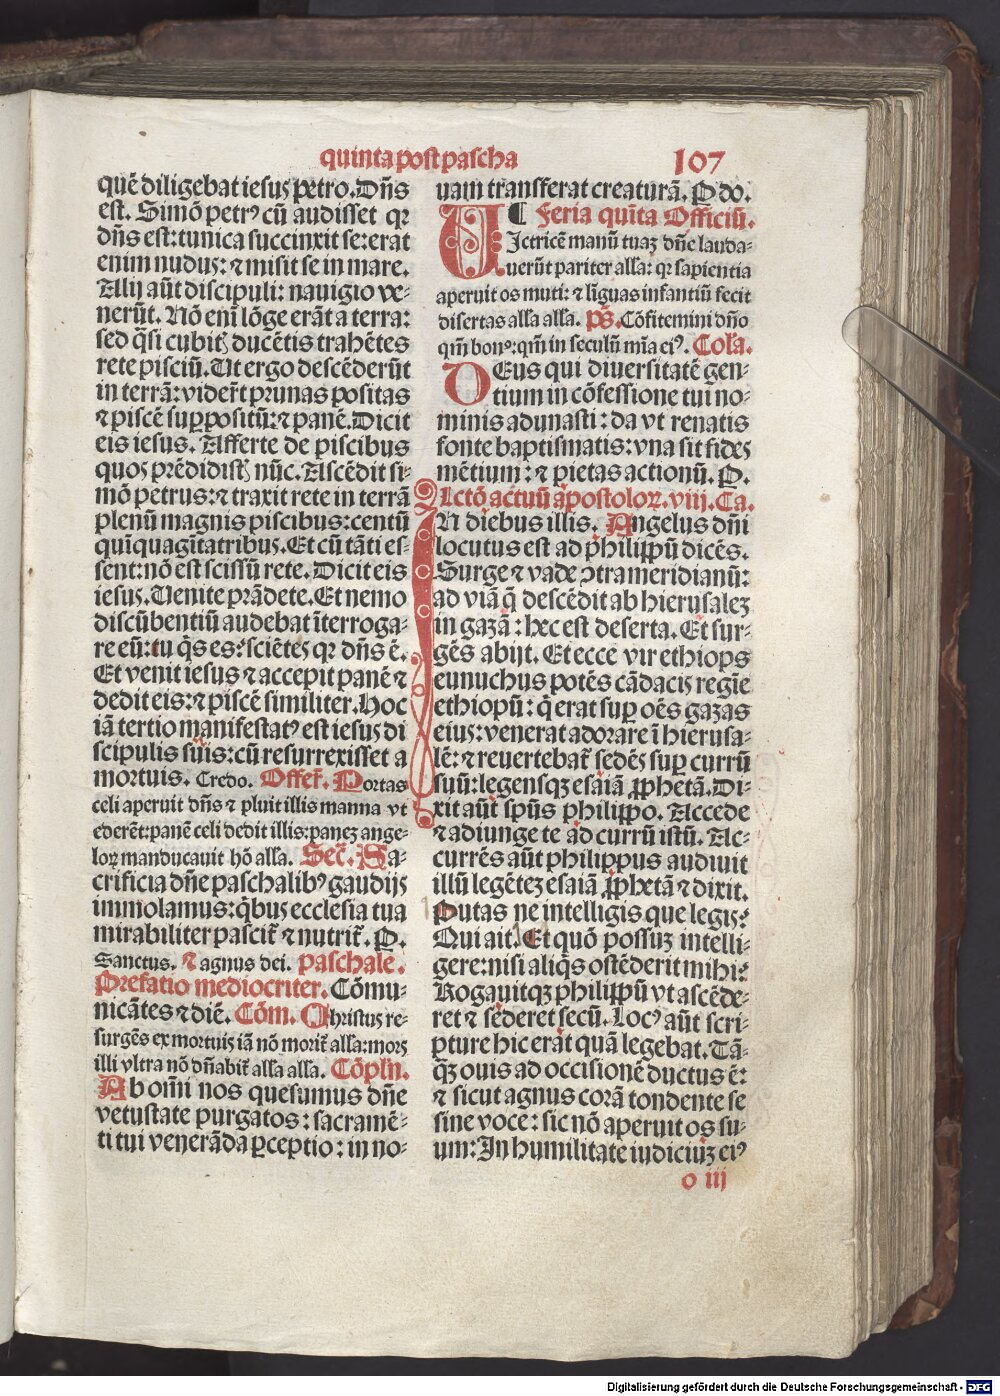 quinta post pascha 107
quē diligebat iesus petro. Dn̄s
est. Simō petrꝰ cū audisset qꝛ
dn̄s est: tunica succinxit se: erat
enim nudus: ⁊ misit se in mare.
Alij aūt discipuli: nauigio ve⸗
nerūt. Nō eni̅ lōge erāt a terra:
sed q̄si cubitꝭ ducētis trahētes
rete pisciū. Ut ergo descēderūt
in terrā: viderūt prunas positas
⁊ piscē suꝑpositū: ⁊ panē. Dicit
eis iesus. Afferte de piscibus
quos prēdidistꝭ nūc. Ascēdit si⸗
mō petrus: ⁊ traxit rete in terrā
plenū magnis piscibus: centū
quīquagītatribus. Et cū tāti es⸗
sent: nō est scissū rete. Dicit eis
iesus. Uenite prādete. Et nemo
discūbentiū audebat īterroga⸗
re eū: tu q̄s es: sciētes qꝛ dn̄s ē.
Et venit iesus ⁊ accepit panē ⁊
dedit eis: ⁊ piscē similiter. Hoc
iā tertio manifestatꝰ est iesus di
scipulis suis: cū resurrexisset a
mortuis. Credo. Offer̄. Portas
celi aperuit dn̄s ⁊ pluit illis manna vt
ederēt: panē celi dedit illis: panez ange⸗
loꝝ manducauit hō alla. Sec̄. Sa⸗
crificia dn̄e paschalibꝰ gaudijs
immolamus: q̄bus ecclesia tua
mirabiliter pascit̄ ⁊ nutrit̄. P.
Sanctus. ⁊ agnus dei. paschale.
Prefatio mediocriter. Cōmu⸗
nicātes ⁊ diē. Cōm. Christus re⸗
surgēs ex mortuis iā nō morit̄ alla: mors
illi vltra nō dn̄abit̄ alla alla. Cōpln̄.
Ab om̄i nos quesumus dn̄e
vetustate purgatos: sacramē⸗
ti tui venerāda ꝑceptio: in no⸗
uam transferat creaturā. P do.
¶ Feria quīta Officiū.
Uictricē manū tuaꝫ dn̄e lauda⸗
uerūt pariter alla: qꝛ sapientia
aperuit os muti: ⁊ līguas infantiū fecit
disertas alla alla. ps̄. Cōfitemini dn̄o
qm̄ bonꝰ: qm̄ in seculū mīa eiꝰ. Coll̄a.
DEus qui diuersitatē gen⸗
tium in cōfessione tui no⸗
minis adunasti: da vt renatis
fonte baptismatis: vna sit fides
mētium: ⁊ pietas actionū. P.
Lctō actuū apostoloꝝ. viii. Ca.
IN diebus illis. Angelus dn̄i
locutus est ad philippū dicēs.
Surge ⁊ vade ꝯtra meridianū:
ad viā q̄ descēdit ab hierusalez
in gazā: hec est deserta. Et sur⸗
gēs abijt. Et ecce vir ethiops
eunuchus potēs cādacis regīe
ethiopū: q̄ erat suꝑ oēs gazas
eius: venerat adorare ī hierusa⸗
lē: ⁊ reuertebat̄ sedēs suꝑ currū
suū: legensqꝫ esaiā ꝓphetā. Di⸗
xit aūt spūs philippo. Accede
⁊ adiunge te ad currū istū. Ac⸗
currēs aūt philippus audiuit
illū legētez esaiā ꝓphetā ⁊ dixit.
Putas ne intelligis que legis:
Qui ait. Et quō possuꝫ intelli⸗
gere: nisi aliq̄s ostēderit mihi:
Rogauitqꝫ philippū vt ascēde⸗
ret ⁊ sederet secū. Locꝰ aūt scri⸗
pture hic erat quā legebat. Tā⸗
q̄ꝫ ouis ad occisionē ductus ē:
⁊ sicut agnus corā tondente se
sine voce: sic nō aperuit os su⸗
um: In humilitate iudiciuꝫ eiꝰ
o iij
Digitalisierung gefördert durch die Deutsche Forschungsgemeinschaft - DFG